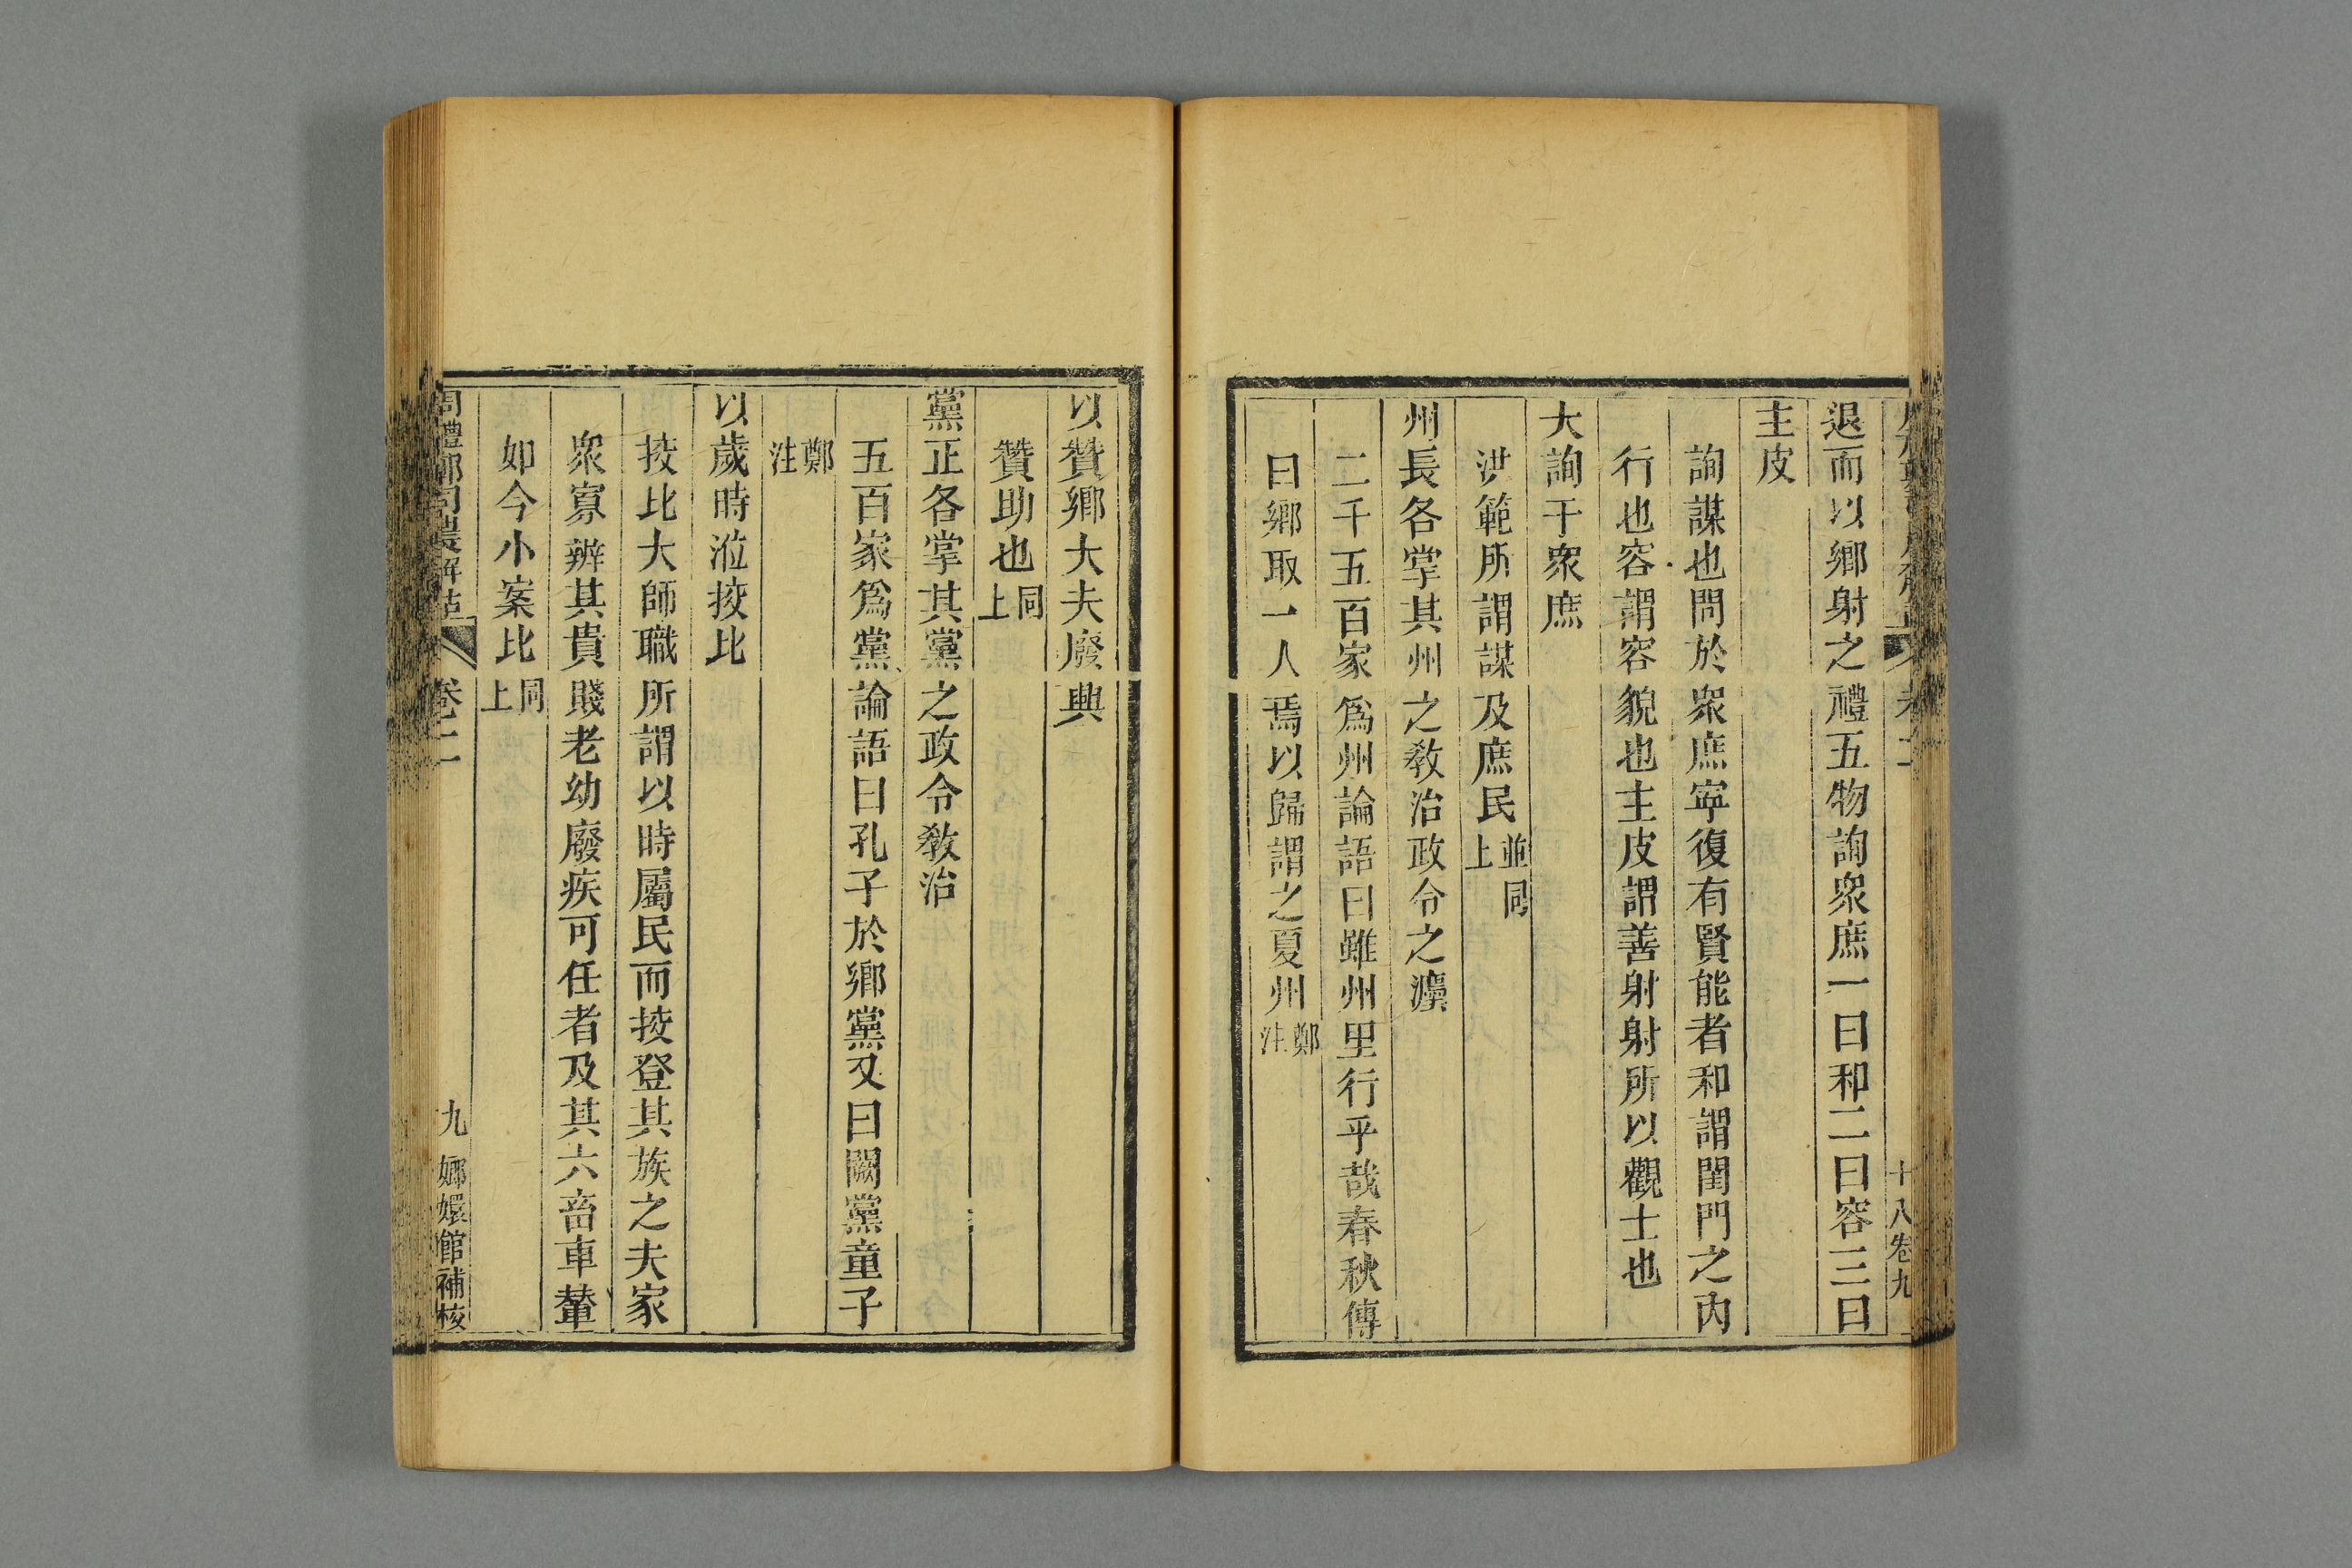 卷二
十八卷九
退而以鄉射之禮五物詢眾庶一曰和二曰容三曰
主皮
詢謀也問於眾庶寧復有賢能者和謂閨門之內
行也容謂容貌也主皮謂善射射所以觀士也
大詢于眾庶
洪範所謂謀及庶民並同上
州長各掌其州之敎治政令之灋
二千五百家爲州論語曰雖州里行乎哉春秋傳
曰鄉取一人焉以歸謂之夏州鄭注
以贊鄉大夫廢興
贊助也同上
黨正各掌其黨之政令敎治
五百家爲黨論語曰孔子於鄉黨又曰闕黨童子
鄭注
以歲時涖挍比
挍比大師職所謂以時屬民而挍登其族之夫家
眾寡辨其貴賤老幼廢疾可任者及其六畜車輦
如今小案比同上
周禮鄭司農解詁
卷二
九
嫏嬛館補校